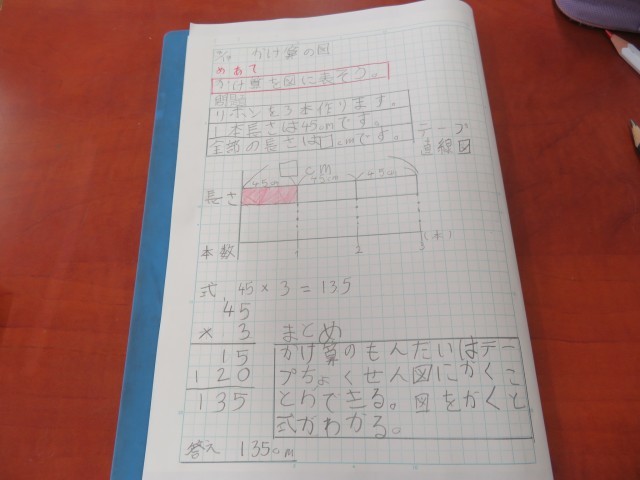 かけ算の図
めあて
かけ算を図に表そう。
問題
リボンを3本作ります。
1本長さは45cmです。
全部の長さは□cmです。
テープ
直線図
□cm
45cm 45cm 45cm
長さ
本数 1 2 3 (本)
式 45×3=135
45
×3
15
120
135
まとめ
かけ算のもんだいはテー
プちょくせん図にかくこ
とができる。図をかくと
式がわかる。
答え 135cm